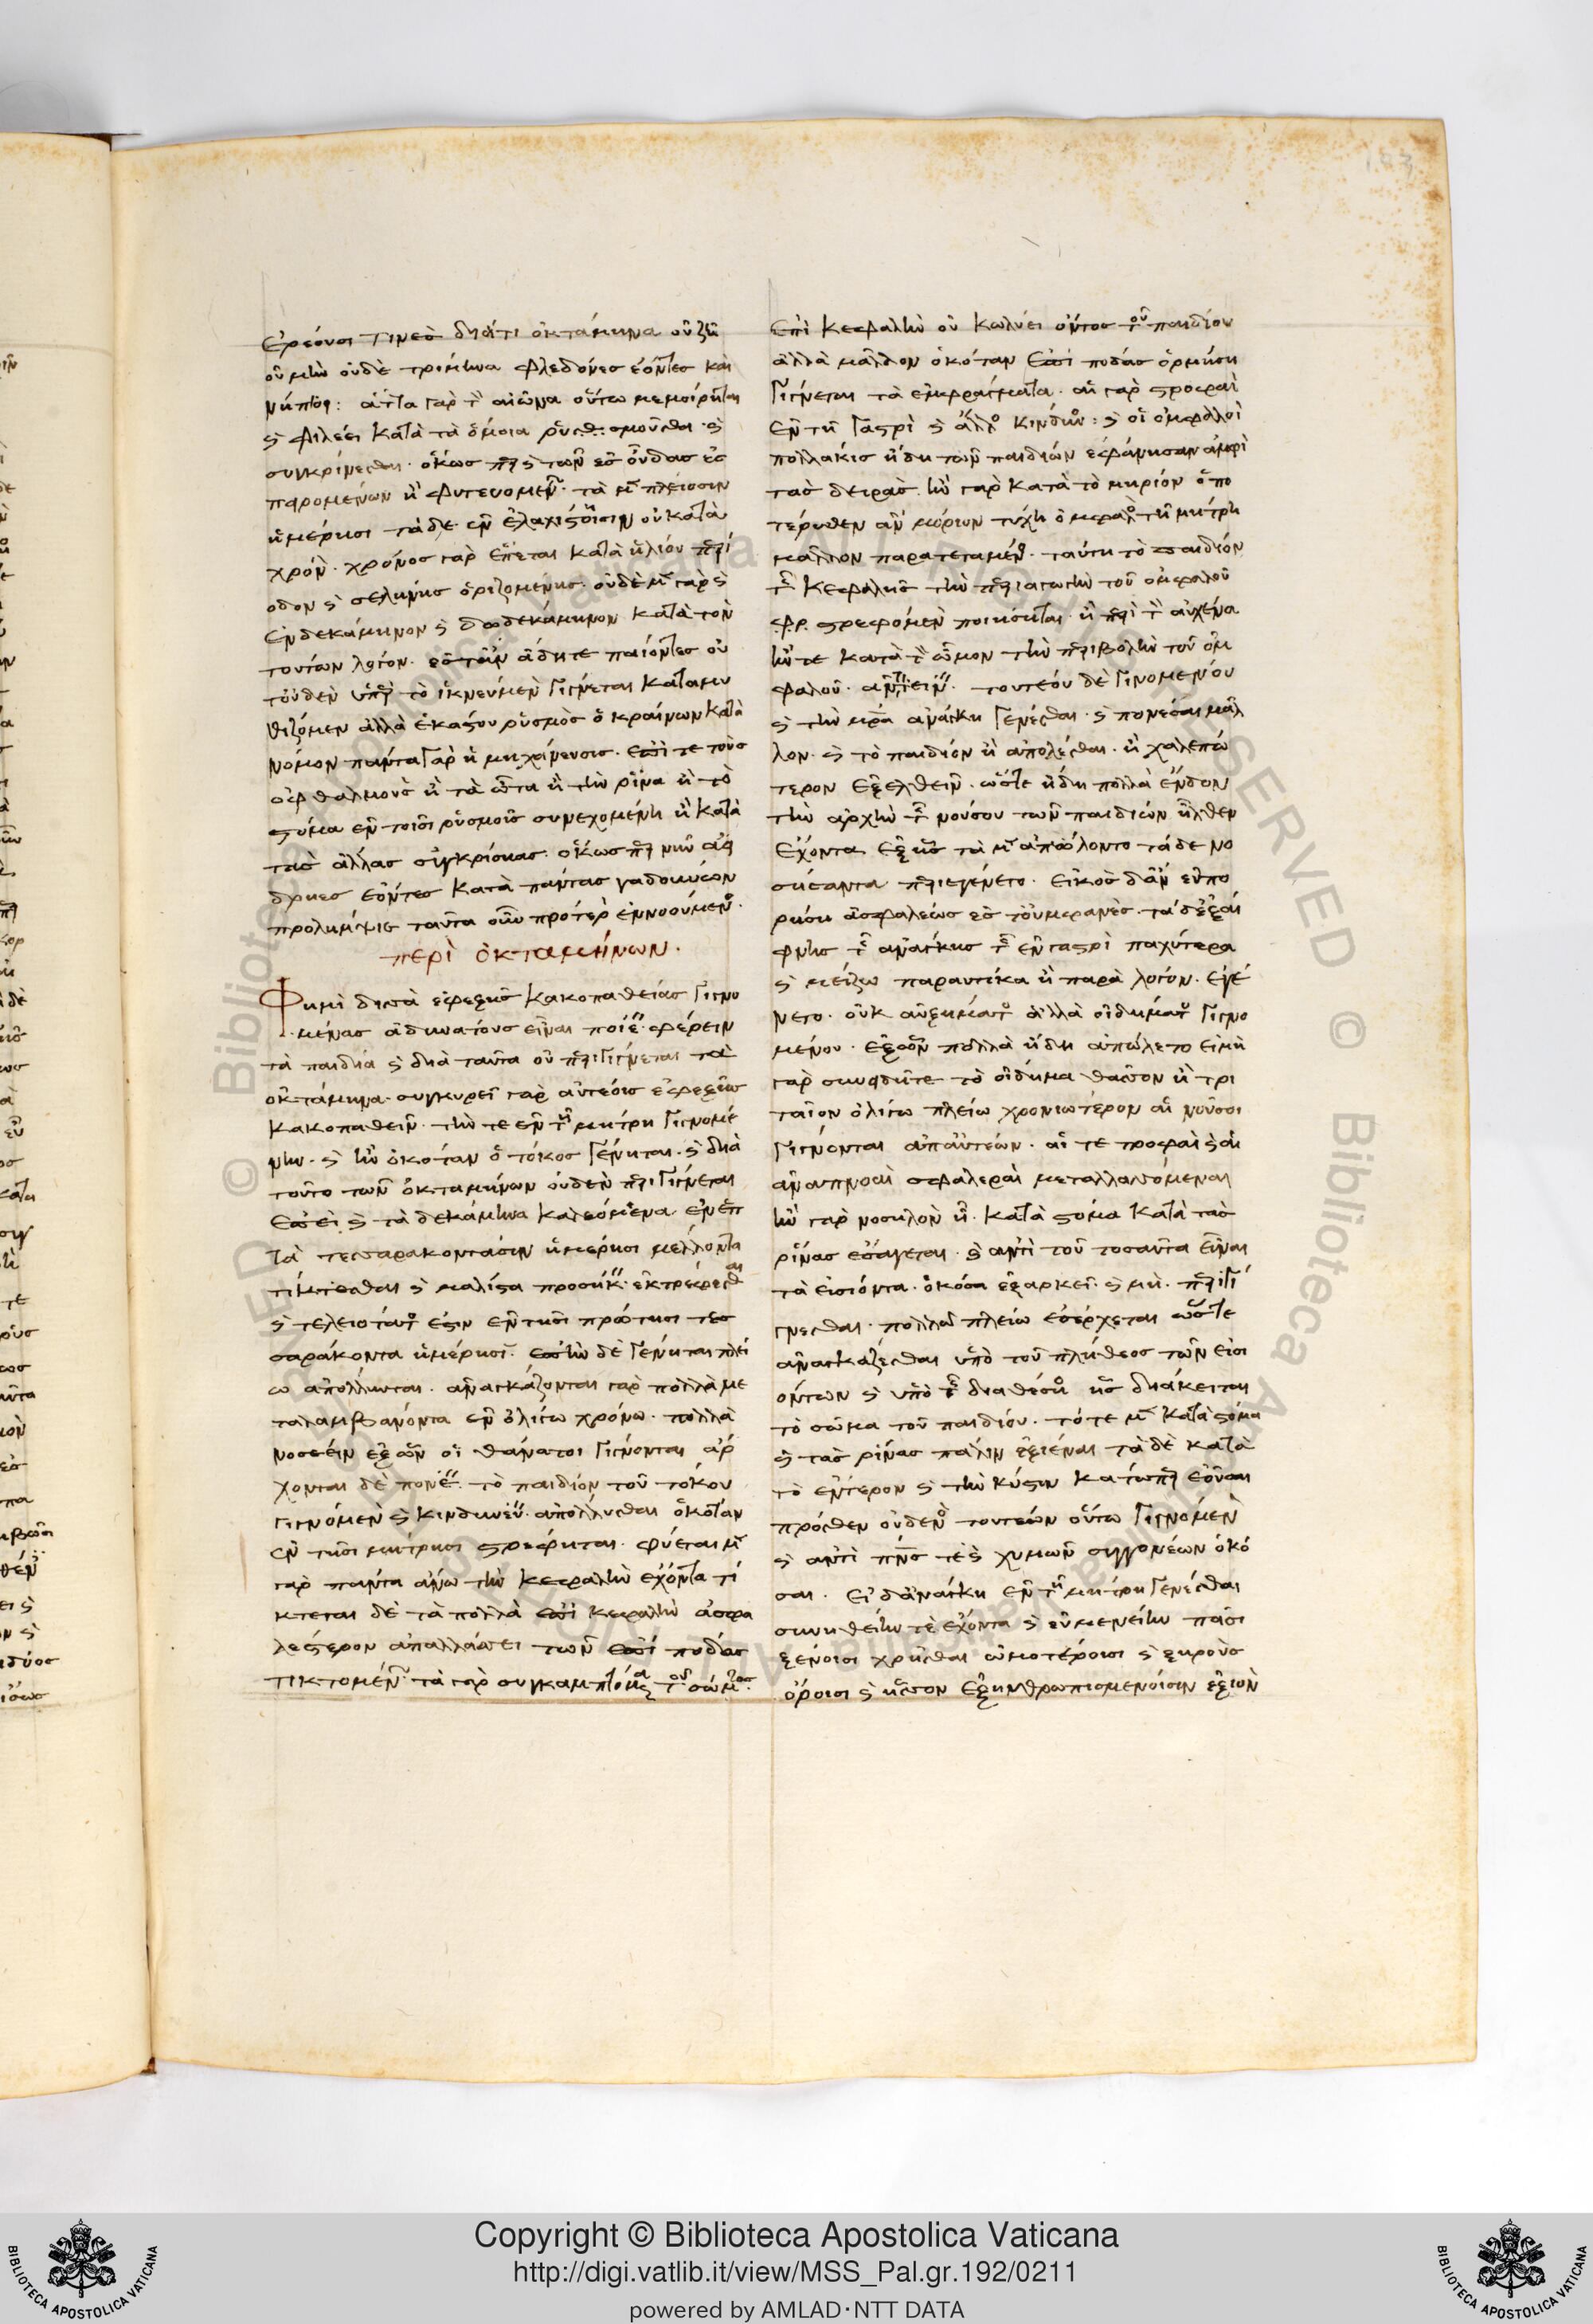 ἐρέουσι τινὲς διάτι ὀκτάμηνα οὐ ζῆ
οὐ μὴν οὐδὲ τρίμηνα φλεδόνες ἐόντες καὶ
νήπιοι: αὐτὰ γὰρ τὸν αἰῶνα οὕτω μεμοίρηται
καὶ φιλέει κατὰ τὰ ὅμοια
συγκρίνεσθαι· ὅκως περὶ τῶν ἐς οὖδας ἐσ
παρομένων ἢ φυτευομένων· τὰ μὲν πλείοσιν
ἡμέρῃσι τὰ δὲ ἐν ἐλαχίστοισιν οὐ κατὰ
χρόνον· χρόνος γὰρ ἕπεται κατὰ ἥλιον περί
οδον καὶ σελήνης ὁριζομένης· οὐδὲ μὲν γὰρ καὶ
ἑνδεκάμηνον καὶ δωδεκάμηνον κατὰ τὸν
τουτέων λόγον.
τοὐδὲν ὑπὲρ τὸ ἱκνεύμενον γίγνεται καταμυ
θιζόμεν ἀλλὰ ἑκάστου ῥυσμὸς ὁ κραίνων κατὰ
νόμον πάντα γὰρ ἡ μηχάνευσις. ἐπί τε τοὺς
ὀφθαλμοὺς ἢ τὰ ὦτα ἢ τὴν ῥῖνα ἢ τὸ
στόμα ἐν τοῖσι ῥυσμοῖς συνεχομένη ἢ κατὰ
τὰς ἄλλας συγκρίσιας· ὅκως
ἐόντες κατὰ πάντας
προλημψις ταῦτα οὖν πρότερον ἐννοούμενος·
περὶ ὀκταμήνων.
Φημὶ δισσὰ ἐφεξῆς κακοπαθείας γιγνο
μένας ἀδυνατους εἶναι φέρειν
τὰ παιδία καὶ διὰ ταῦτα οὐ περιγίγνεται τὰ
ὀκτάμηνα. συγκυρεῖ γὰρ αὐτέοις ἐφεξῆς
κακοπαθεῖν· τήν τε ἐν τῇ μήτρῃ γιγνομέ
νην. καὶ ἢν ὁκόταν ὁ τόκος γένηται. καὶ διὰ
τοῦτο τῶν ὀκταμήνων οὐδὲν περιγίγνεται
ἐπεὶ καὶ τὰ δεκάμηνα καλεόμενα ἐν ἑπ
τὰ τεσσαρακοντάσιν ἡμέρῃσι μέλλοντα
τίκτεσθαι καὶ μάλιστα προσήκει ἐκτρέφεσθαι
καὶ τελειότατα ἐστιν ἐν τῇσι πρώτῃσι τεσ
σαράκοντα ἡμέρῃσι. ἐπὴν δὲ γένηται πλεί
ω ἀπόλλυται. ἀναγκάζονται γὰρ πολλὰ με
ταλαμβάνοντα ἐν ὀλίγῳ χρόνῳ. πολλὰ
νοσέειν ἐξ ὧν οἱ θάνατοι γίγνονται ἄρ
χονται δὲ πονέειν τὸ παιδίον τοῦ τόκου
γιγνομένου καὶ κινδυνεύειν ἀπόλλυσθαι ὁκόταν
ἐν τῇσι μήτρῃσι στρέφηται. φύεται μὲν
γὰρ πάντα ἄνω τὴν κεφαλὴν ἔχοντα τί
κτεται δὲ τὰ πολλὰ ἐπὶ κεφαλὴν ἀσφα
λέστερον ἀπαλλάσσει τῶν ἐπὶ πόδας
τικτομένων· τὰ γὰρ συγκαμπτόμενα τοῦ σώματος
ἐπὶ κεφαλὴν οὐ κωλύει ὄντος τοῦ παιδίου
ἀλλὰ μᾶλλον ὁκόταν ἐπὶ πόδας ὁρμήσῃ
γίγνεται τὰ ἐμφράγματα. αἱ γὰρ στροφαὶ
ἐν τῇ γαστρὶ καὶ ἄλλος κίνδυνος: καὶ οἱ ὀμφαλοὶ
πολλάκις ἤδη τῶν παιδίων ἐφάνησαν ἀμφὶ
τὰς δειρὰς. ἢν γὰρ κατὰ τὸ μηρίον ὁπο
τέρωθεν ἂν μόριον τύχῃ ὀμφαλὸς τῇ μήτρῃ
μᾶλλον παρατεταμένος· ταύτῃ τὸ παιδίον
τῆς κεφαλῆς τὴν περιαγωγὴν τοῦ ὀμφαλοῦ
στρεφόμενον ποιήσηται. ἢ περὶ τὸν αὐχένα
ἤν τε κατὰ τὸν ὦμον τὴν περιβολὴν τοῦ ὀμ
φαλοῦ. ἀντιτείνει. τουτέου δὲ γινομένου
καὶ τὴν μητέρα ἀνάγκη γενέσθαι. καὶ πονέσαι μᾶλ
λον. καὶ τὸ παιδίον ἢ ἀπολέσθαι. ἢ χαλεπώ
τερον ἐξελθεῖν. ὥστε ἤδη πολλὰ ἔνδον
τὴν ἀρχὴν τῆς νούσου τῶν παιδίων ἦλθεν
ἔχοντα ἐξ ἧς τὰ μὲν ἀπώλοντο τὰ δὲ νο
σήσαντα περιεγένετο. εἰκὸς δ' ἂν εὐπο
ρήσῃ ἀσφαλέως ἐς τοὐμφανὲς. τὰ δ' ἐξαί
φνης τῆς ἀνάγκης τῆς ἐν γαστρὶ παχύτερα
καὶ μείζω παραυτίκα ἢ παρὰ λόγον. ἐγέ
νετο. οὐκ αὐξήματος ἀλλὰ οἰδήματος γιγνο
μένου. ἐξ ὧν πολλὰ ἤδη ἀπώλετο εἰ μὴ
γὰρ συνῳδῆτε τὸ οἴδημα θᾶσσον ἢ τρι
ταῖον ὀλίγῳ πλείω χρονιώτερον αἱ νοῦσοι
γίγνονται ἀπ' αὐτέων. αἵ τε τροφαὶ καὶ αἱ
ἀναπνοαὶ σφαλεραὶ μεταλλασσόμεναι
ἢν γὰρ νοσηλὸν ᾖ. κατὰ στόμα κατὰ τὰς
ῥῖνας ἐσάγεται. καὶ ἀντὶ τοῦ τοσαῦτα εἶναι
τὰ εἰσιόντα. ὁκόσα ἐξαρκεῖ. καὶ μὴ. περιγί
γνεσθαι. πολλῷ πλείω ἐσέρχεται ὥστε
ἀναγκάζεσθαι ὑπὸ τοῦ πλήθεος τῶν εἰσι
όντων καὶ ὑπὸ τῆς διαθέσιος ἧς διάκειται
τὸ σῶμα τοῦ παιδίου. τότε μὲν κατὰ στόμα
καὶ τὰς ῥῖνας πάλιν ἐξιέναι τὰ δὲ κατὰ
τὸ ἔντερον καὶ τὴν κύστιν κάτωπερ ἐοῦσαι
πρόσθεν οὐδενὸς τουτέων οὕτω γιγνόμενον
καὶ ἀντὶ χυμῶν συγγονέων ὁκό
σαι. εἰ δ' ἀνάγκη ἐν τῇ μήτρῃ γενέσθαι
συνηθείην τὲ ἔχοντα καὶ εὐμενείην πᾶσι
ξένοισι χρῆσθαι ὠμοτέροισι καὶ ξηροὺς
ὅροισι καὶ ἧσσον ἐξηνθρωπισμένοισιν ἐξιὸν
Copyright © Biblioteca Apostolica Vaticana
http://digi.vatlib.it/view/MSS_Pal.gr.192/0211
powered by AMLAD·NTT DATA